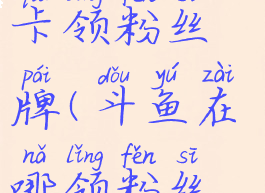 卡领粉丝
pái dǒu yú zài
牌(斗鱼在
nǎ lǐng fěn sī
哪领粉丝